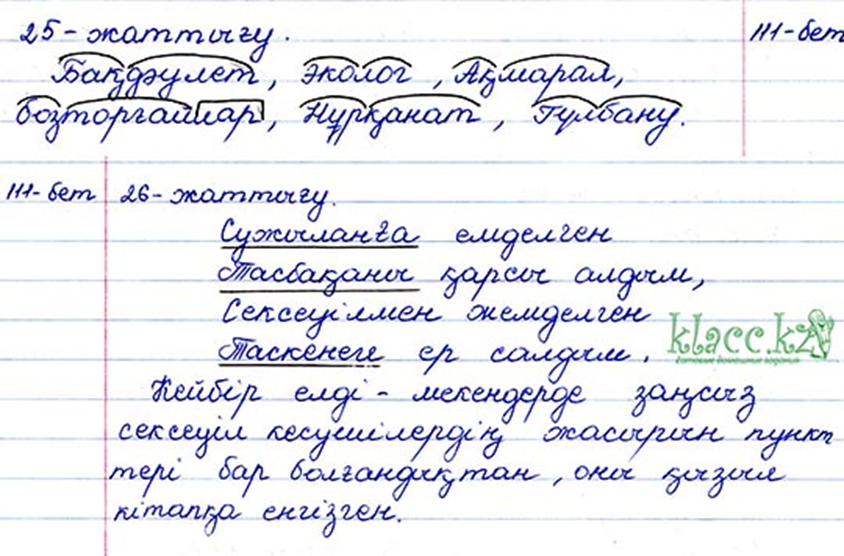 25-жаттығу.
111-бет
Бақдәулет, эколог, Ақмарал,
бозторғайлар, Нұрқанат, Гүлбану.
111-бет
26-жаттығу.
Сужыланға емделген
Тасбақаны қарсы алдым,
Сексеуілмен жемделген
Таскенеге ер салдым.
klacc.kz
Кейбір елді-мекендерде заңсыз
сексеуіл кесушілердің жасырын пункт
тері бар болғандықтан, оны қызыл
кітапқа енгізген.